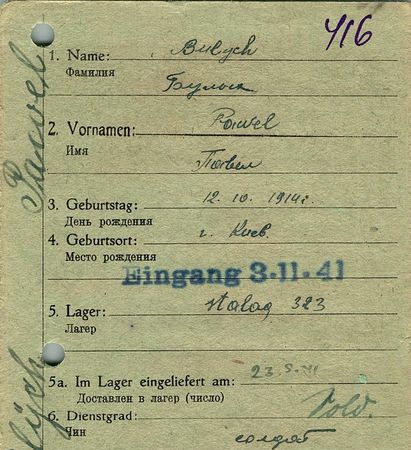 416
1. Name: Bulych
Фамилия
2. Vornamen: Pawel
Имя Павел
3. Geburtstag: 12. 10. 1914 г.
День рождения
4. Geburtsort: г. Киев
Место рождения
Eingang 3.11.41
5. Lager: Stalag 323
Лагер
5a. Im Lager eingeliefert am:
Доставлен в лагер (число)
6. Dienstgrad: Sold.
Чин солдат
Pawel